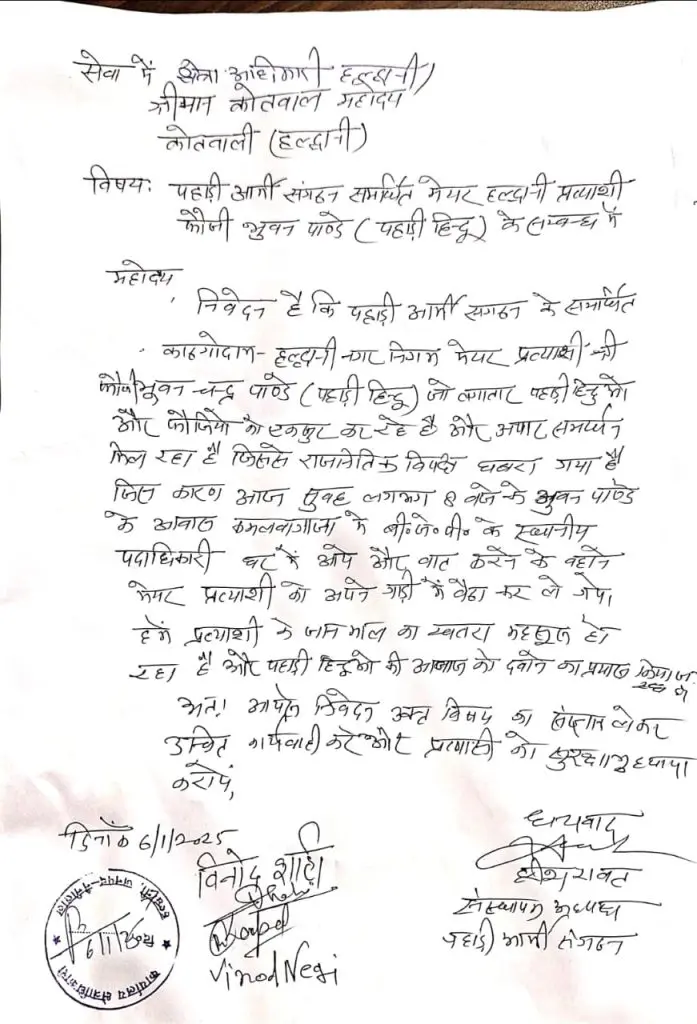 सेवा में क्षेत्रा अधिकारी हल्द्वानी)
श्रीमान कोतवाल महोदय
कोतवाली (हल्द्वानी)
विषय: पहाड़ी आर्मी संगठन समर्थित मेयर हल्द्वानी प्रत्याशी
फौजी भुवन पाण्डे (पहाड़ी हिन्दू) के सम्बन्ध में
महोदय,
निवेदन है कि पहाड़ी आर्मी संगठन के समर्थित
काठगोदाम-हल्द्वानी नगर निगम मेयर प्रत्याशी श्री
फौजी भुवन चन्द्र पाण्डे (पहाड़ी हिन्दू) जो लगातार पहाड़ी हिन्दुओं
और फौजियों को एकजुट कर रहे है और अपार समर्थन
मिल रहा है जिससे राजनैतिक विपक्ष घबरा गया है
जिस कारण आज सुबह लगभग 8 बजे के भुवन पाण्डे
के आवास कमलवागांजा में बी०जे०पी० के स्थानीय
पदाधिकारी घर में आये और बात करने के बहाने
मेयर प्रत्याशी को अपने गाड़ी में बैठा कर ले गये।
हमें प्रत्याशी के जान माल का खतरा महसूस हो
रहा है और पहाड़ी हिन्दुओं की आवाज को दबाने का प्रयास किया जा
रहा है
अतः आपसे निवेदन उक्त विषय का संज्ञान लेकर
उचित कार्यवाही करे और प्रत्याशी को सुरक्षा मुहैया
करायें,
दिनाँक 6/1/2025
धन्यवाद
विनोद शाही
हरीश रावत
संस्थापक अध्यक्ष
पहाड़ी आर्मी संगठन
Vinod Negi
कार्यालय क्षेत्राधिकारी
हल्द्वानी, जनपद-नैनीताल
6/1/2025